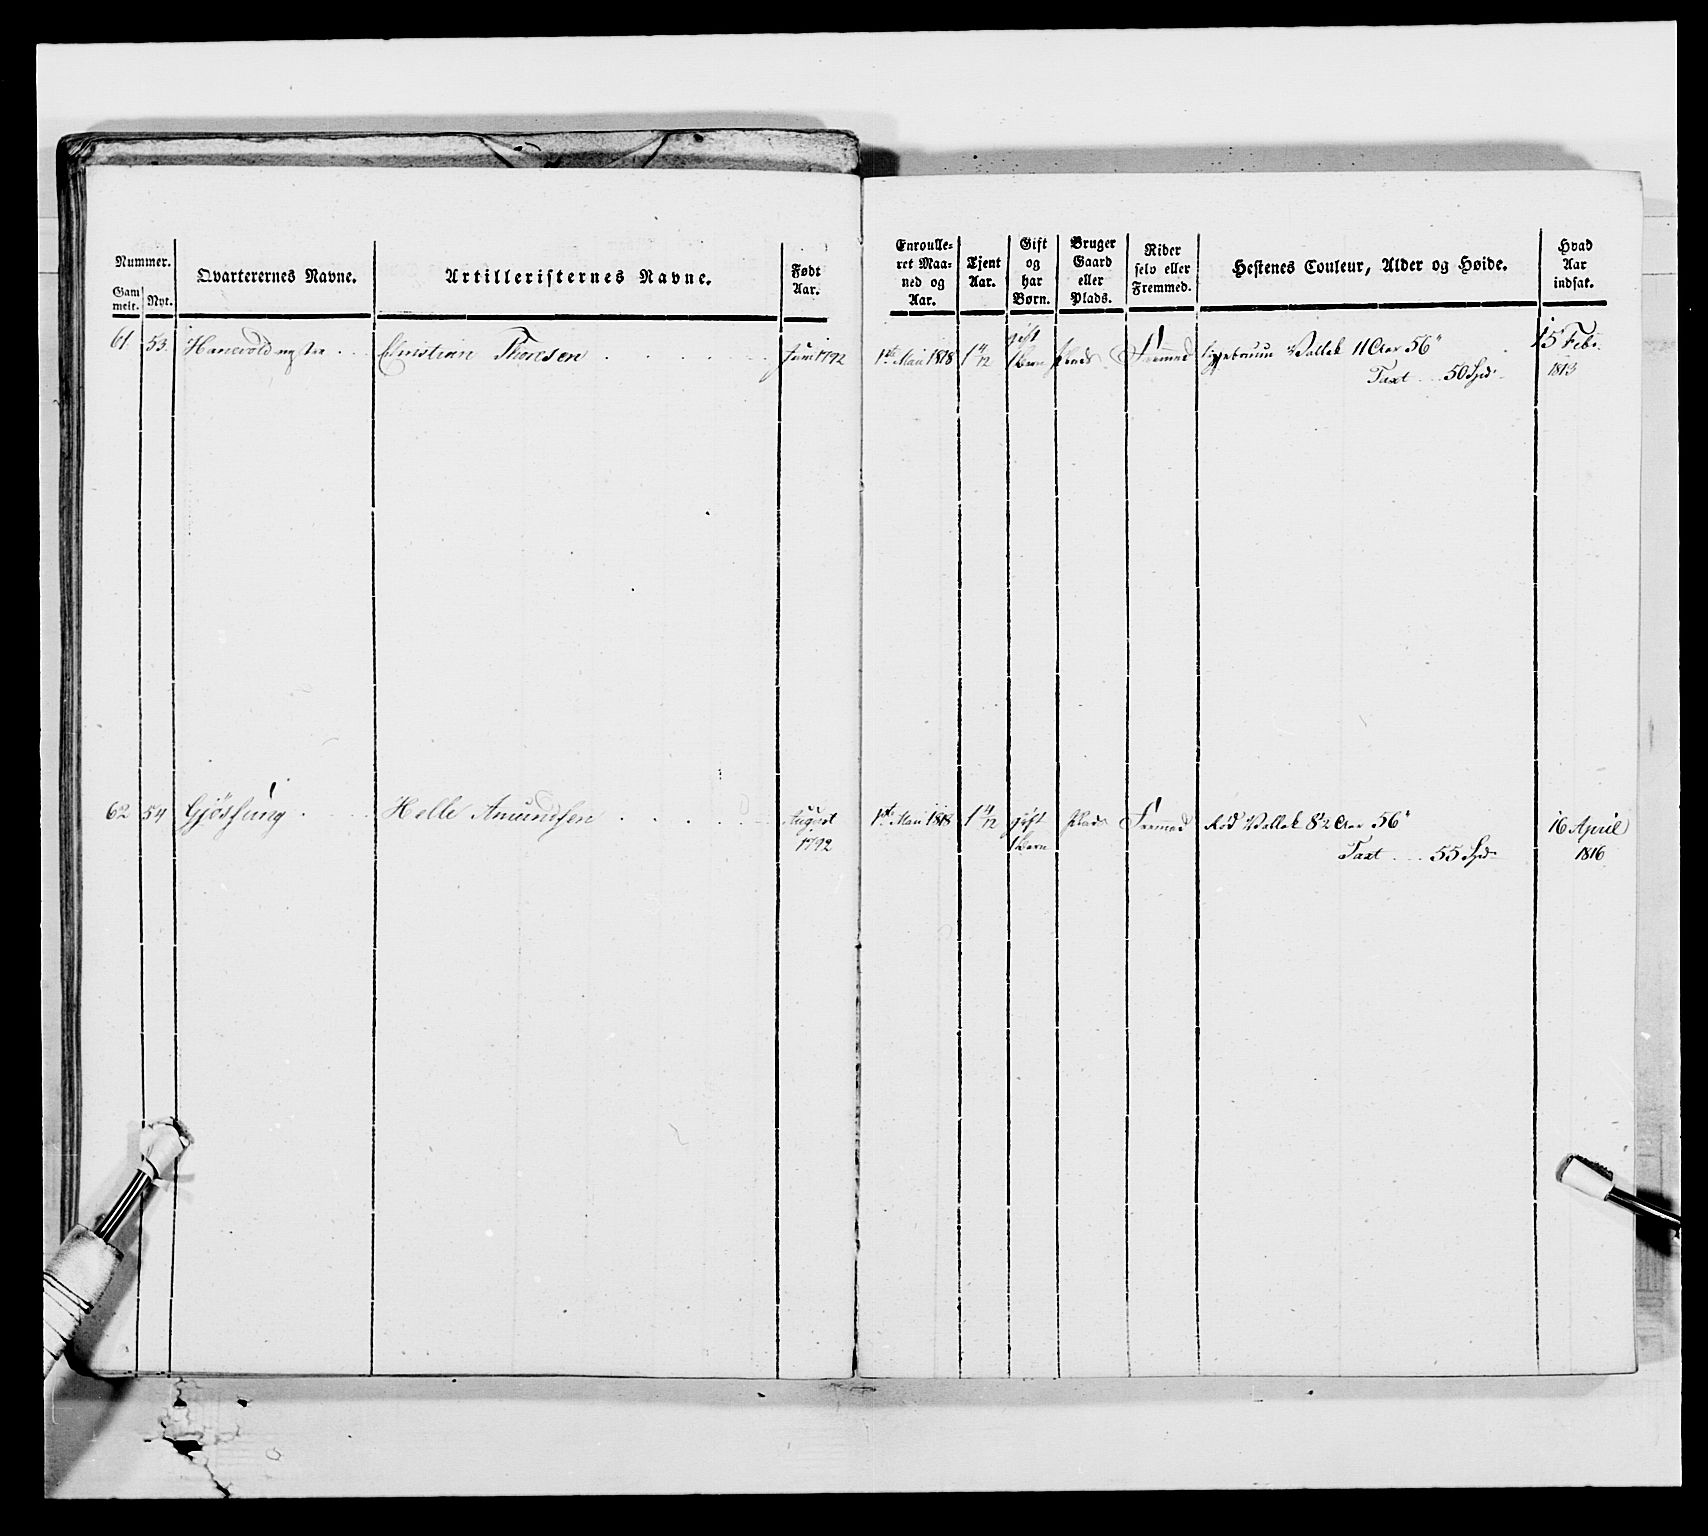 Nummer.
Gam
melt.
Nyt.
Qvarterernes Navne.
Artilleristernes Navne.
Født
Aar.
Enroulle-
ret Maa-
ned og
Aar.
Tjent
Aar.
Gift
og
har
Børn.
Bruger
Gaard
eller
Plads.
Rider
selv eller
Fremmed.
Hestenes Couleur, Alder og Høide.
Hvad
Aar
indsat.
61 53. Christian Thoresen Juni 1792 1ste Mai 1818 1 4/12 gift
1 Barn Plads Fremmed Vallak 11 Aar 56"
Taxt 50 Spd 15 Feb.
1813
62 54 Helle Amundsen August
1792 1ste Mai 1818 1 4/12 gift
1 Barn Plads Fremmed Rød Vallak 8½ Aar 56"
Taxt 55 Spd 16 April
1816